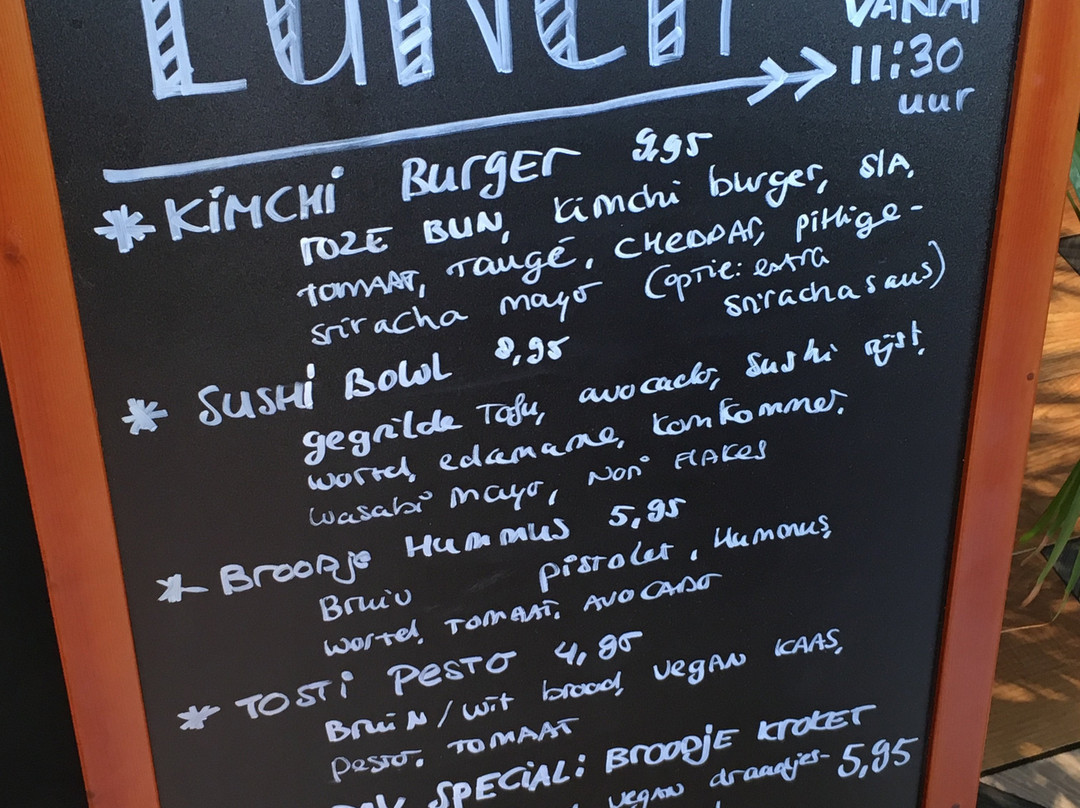 LUNCH VANAF
11:30
uur
* KIMCHI BURGER 9,95
ROZE BUN, kimchi burger, SLA,
TOMAAT, TAUGÉ, CHEDDAR, PITTIGE-
sriracha mayo (OPTIE: extra
srirachasaus)
* SUSHI BOWL 8,95
gegrilde Tofu, avocado, sushi rijst,
wortel, edamame, komkommer,
wasabi mayo, Nori FLAKES
* BROODje HUMMUS 5,95
BRUIN pistolet, Hummus,
wortel, TOMAAT, AVOCADO
* TOSTI PESTO 4,95
BRUIN/wit brood, vegan KAAS,
pesto, TOMAAT
SPECIAL: BROODJE KROKET
vegan draadjes- 5,95